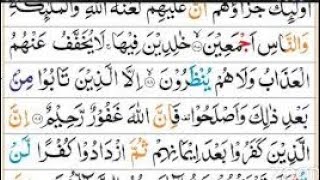 اُولٰٓئِكَ جَزَآؤُهُمْ اَنَّ عَلَيْهِمْ لَعْنَةَ اللّٰهِ وَالْمَلٰٓئِكَةِ
وَالنَّاسِ اَجْمَعِيْنَ ۝٨٧ خٰلِدِيْنَ فِيْهَا ۚ لَا يُخَفَّفُ عَنْهُمُ
الْعَذَابُ وَلَا هُمْ يُنْظَرُوْنَ ۝٨٨ اِلَّا الَّذِيْنَ تَابُوْا مِنْۢ
بَعْدِ ذٰلِكَ وَاَصْلَحُوْا ۟ فَاِنَّ اللّٰهَ غَفُوْرٌ رَّحِيْمٌ ۝٨٩ اِنَّ
الَّذِيْنَ كَفَرُوْا بَعْدَ اِيْمَانِهِمْ ثُمَّ ازْدَادُوْا كُفْرًا لَّنْ